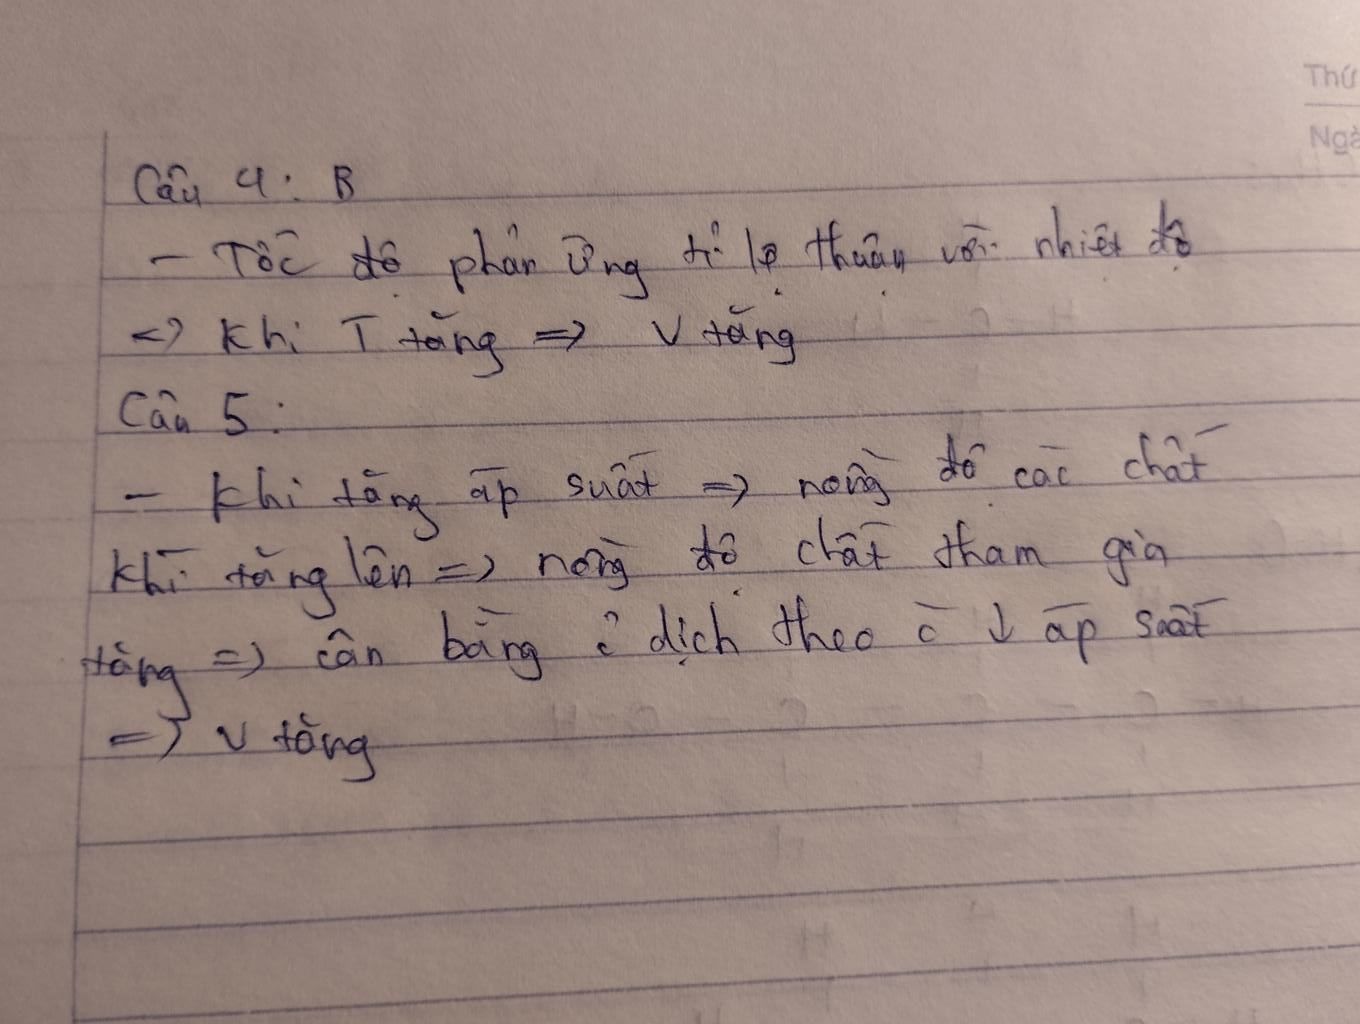 Thứ
Ngà
Câu 4: B
- Tốc độ phản ứng tỉ lệ thuận với nhiệt độ
<=> Khi T tăng => V tăng
Câu 5:
- Khi tăng áp suất => nồng độ các chất
khí tăng lên => nồng độ chất tham gia
tăng => cân bằng dịch theo c ↓ áp suất
=> V tăng